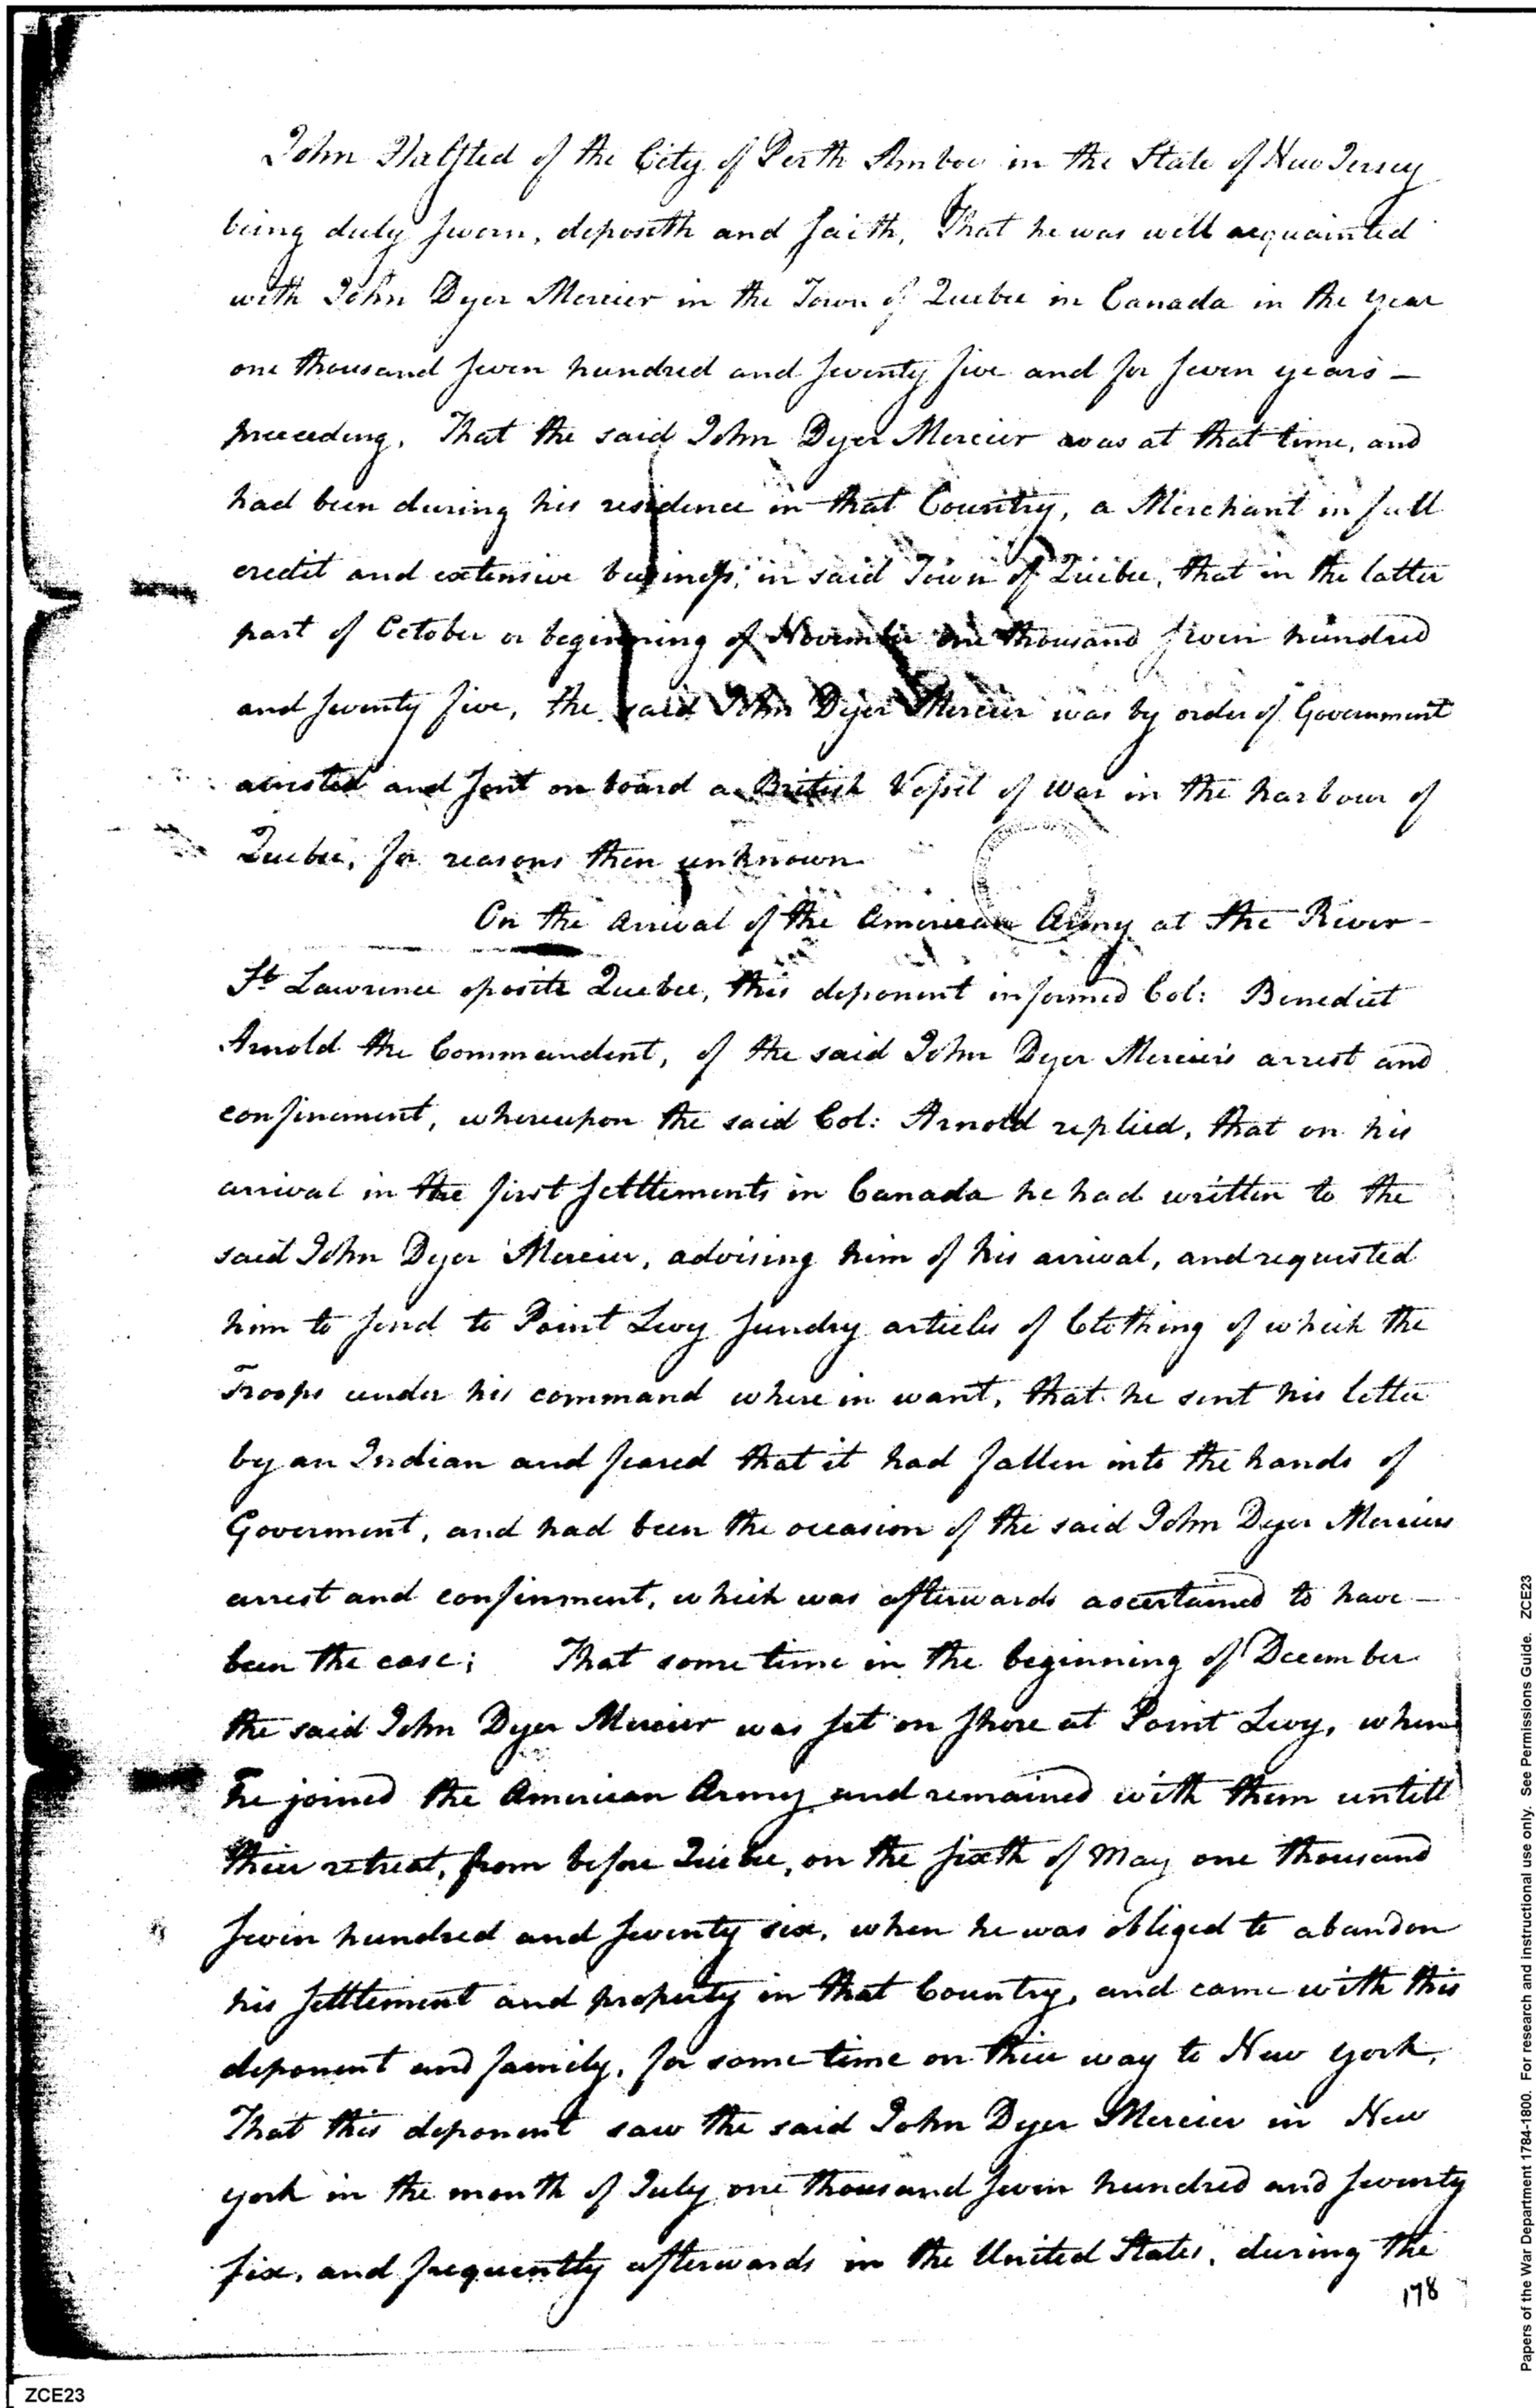 John Halsted of the City of Perth Amboe in the State of New Jersey
being duly sworn, deposeth and saith, That he was well acquainted
with John Dyer Mercier in the Town of Quebec in Canada in the year
one thousand seven hundred and seventy five and for seven years –
preceeding. That the said John Dyer Mercier was at that time, and
had been during his residence in that Country, a Merchant in full
credit and extensive business, in said Town of Quebec, that in the latter
part of October or beginning of November one thousand seven hundred
and seventy five, the said John Dyer Mercier was by order of Government
arrested and sent on board a British Vessel of War in the harbour of
Quebec, for reasons then unknown
On the arrival of the American Army at the River –
St Lawrence oposite Quebec, this deponent informed Col: Benedict
Arnold the Commandent, of the said John Dyer Mercier's arrest and
confinement, whereupon the said Col: Arnold replied, that on his
arrival in the first settlements in Canada he had written to the
said John Dyer Mercier, advising him of his arrival, and requested
him to send to Point Levy sundry articles of Clothing of which the
Troops under his command where in want, that he sent his letter
by an Indian and feared that it had fallen into the hands of
Goverment, and had been the occasion of the said John Dyer Merciers
arrest and confinment, which was afterwards ascertained to have –
been the case; That some time in the beginning of December
the said John Dyer Mercier was set on shore at Point Levy, when
he joined the American Army and remained with them untill
their retreat, from before Quebec, on the sixth of May one thousand
seven hundred and seventy six, when he was obliged to abandon
his settlement and property in that Country, and came with this
deponent and family, for some time on their way to New York,
That this deponent saw the said John Dyer Mercier in New
york in the month of July one thousand seven hundred and seventy
six, and frequently afterwards in the United States, during the
178
ZCE23
Papers of the War Department 1784-1800. For research and instructional use only. See Permissions Guide. ZCE23